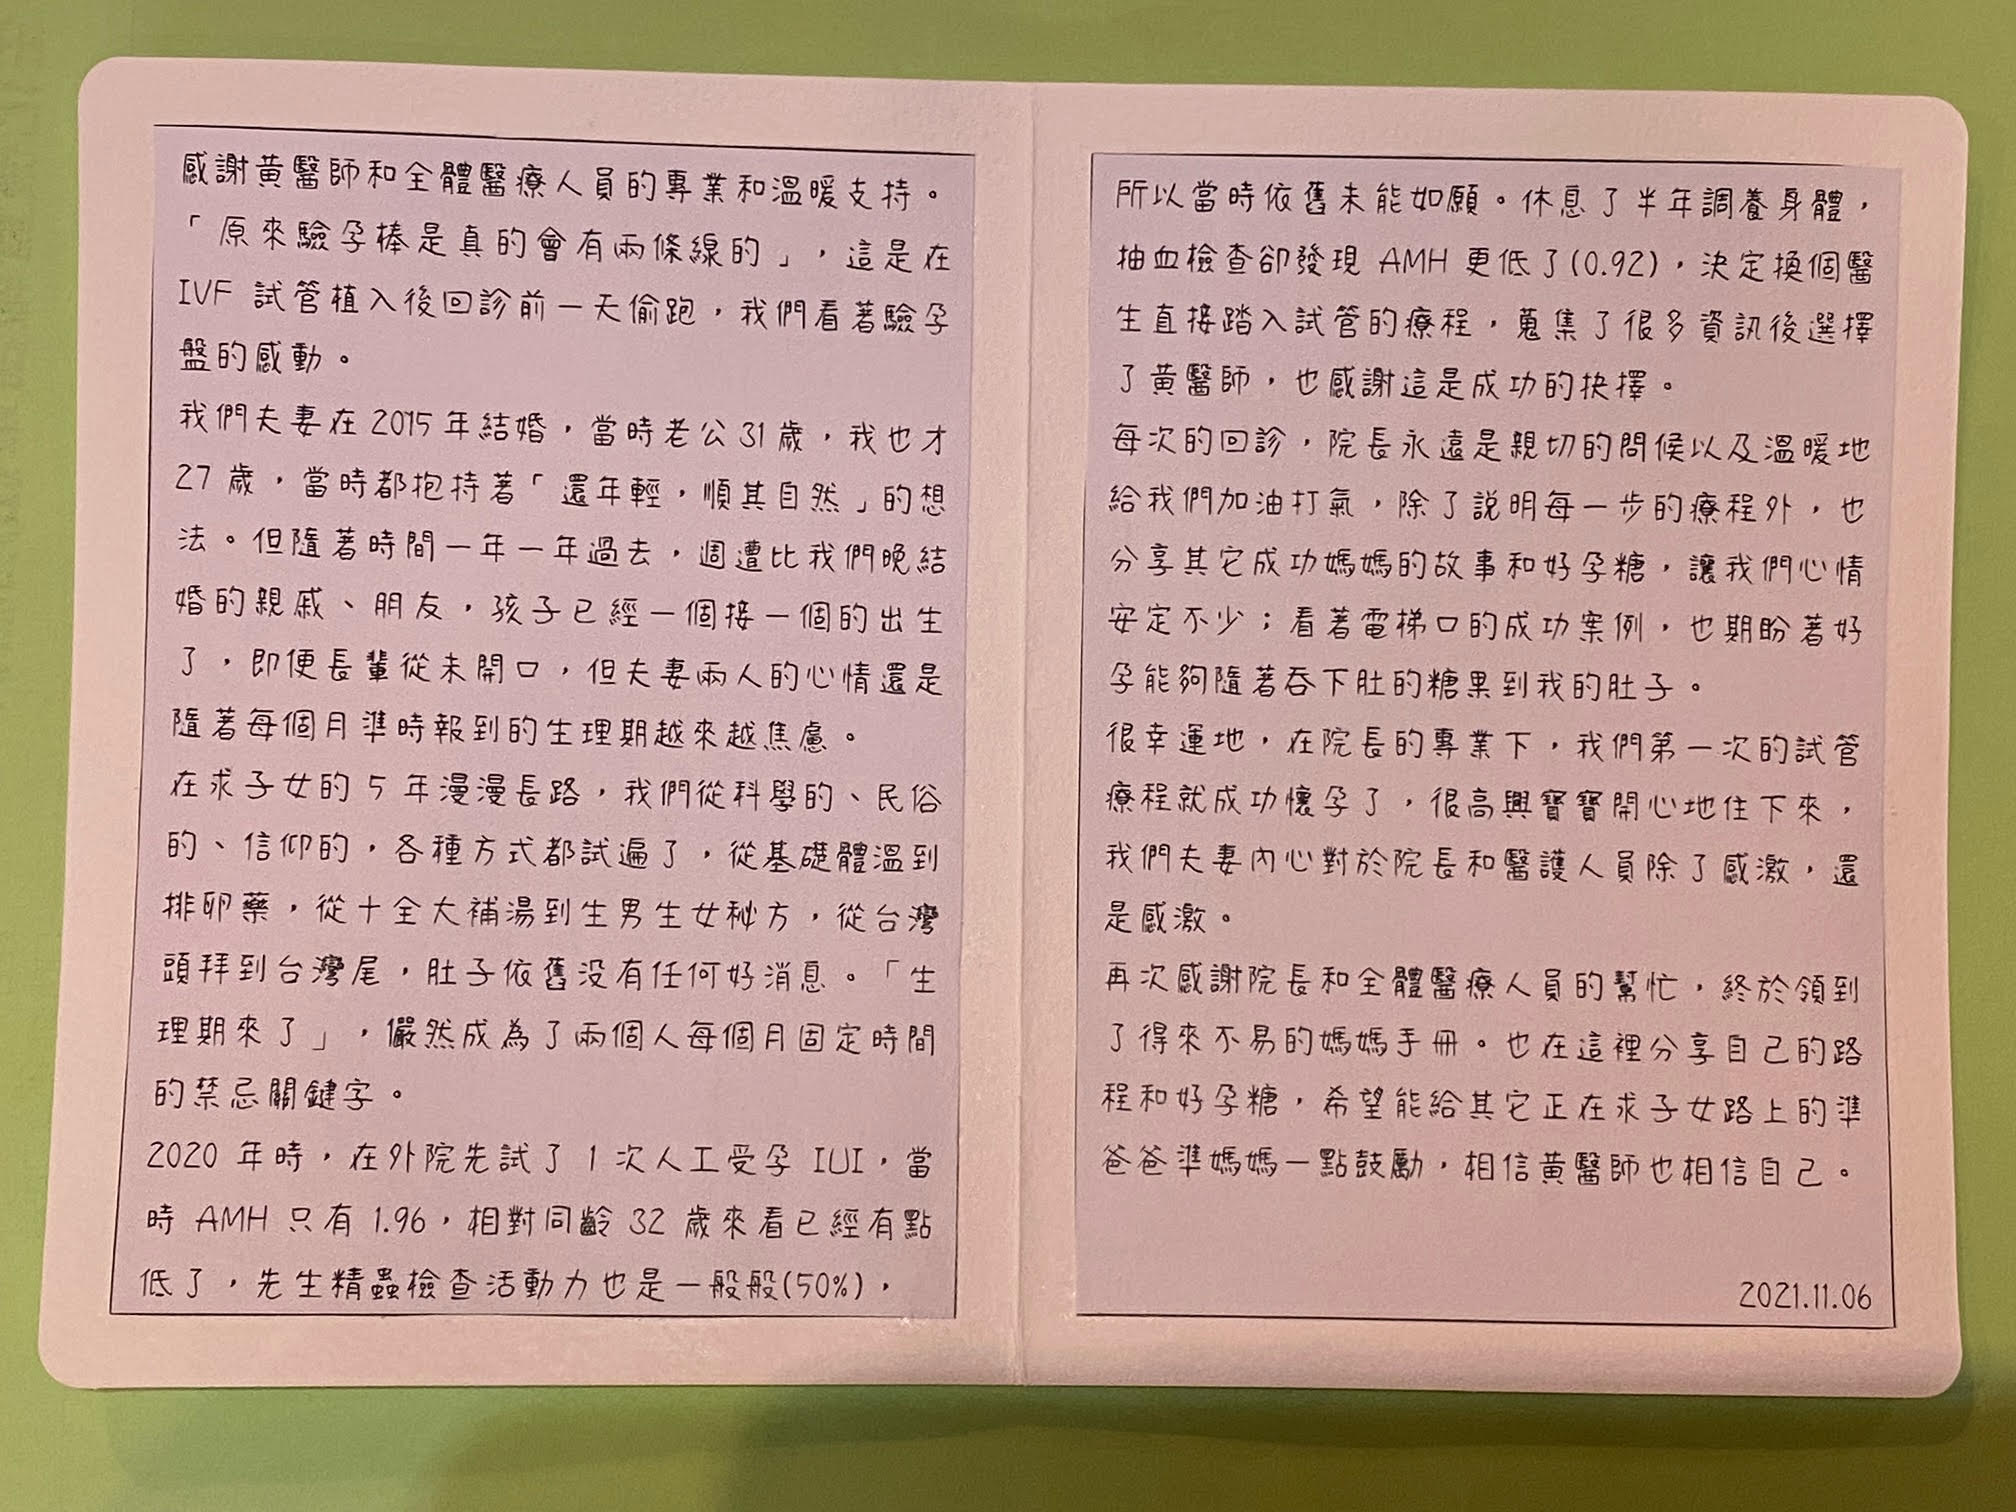 感謝黃醫師和全體醫療人員的專業和溫暖支持。
「原來驗孕棒是真的會有兩條線的」，這是在
IVF 試管植入後回診前一天偷跑，我們看著驗孕
盤的感動。
我們夫妻在 2015 年結婚，當時老公 31 歲，我也才
27 歲，當時都抱持著「還年輕，順其自然」的想
法。但隨著時間一年一年過去，週遭比我們晚結
婚的親戚、朋友，孩子已經一個接一個的出生
了，即便長輩從未開口，但夫妻兩人的心情還是
隨著每個月準時報到的生理期越來越焦慮。
在求子女的 5 年漫漫長路，我們從科學的、民俗
的、信仰的，各種方式都試遍了，從基礎體溫到
排卵藥，從十全大補湯到生男生女秘方，從台灣
頭拜到台灣尾，肚子依舊沒有任何好消息。「生
理期來了」，儼然成為了兩個人每個月固定時間
的禁忌關鍵字。
2020 年時，在外院先試了 1 次人工受孕 IUI，當
時 AMH 只有 1.96，相對同齡 32 歲來看已經有點
低了，先生精蟲檢查活動力也是一般般(50%)，
所以當時依舊未能如願。休息了半年調養身體，
抽血檢查卻發現 AMH 更低了(0.92)，決定換個醫
生直接踏入試管的療程，蒐集了很多資訊後選擇
了黃醫師，也感謝這是成功的抉擇。
每次的回診，院長永遠是親切的問候以及溫暖地
給我們加油打氣，除了說明每一步的療程外，也
分享其它成功媽媽的故事和好孕糖，讓我們心情
安定不少；看著電梯口的成功案例，也期盼著好
孕能夠隨著吞下肚的糖果到我的肚子。
很幸運地，在院長的專業下，我們第一次的試管
療程就成功懷孕了，很高興寶寶開心地住下來，
我們夫妻內心對於院長和醫護人員除了感激，還
是感激。
再次感謝院長和全體醫療人員的幫忙，終於領到
了得來不易的媽媽手冊。也在這裡分享自己的路
程和好孕糖，希望能給其它正在求子女路上的準
爸爸準媽媽一點鼓勵，相信黃醫師也相信自己。
2021.11.06